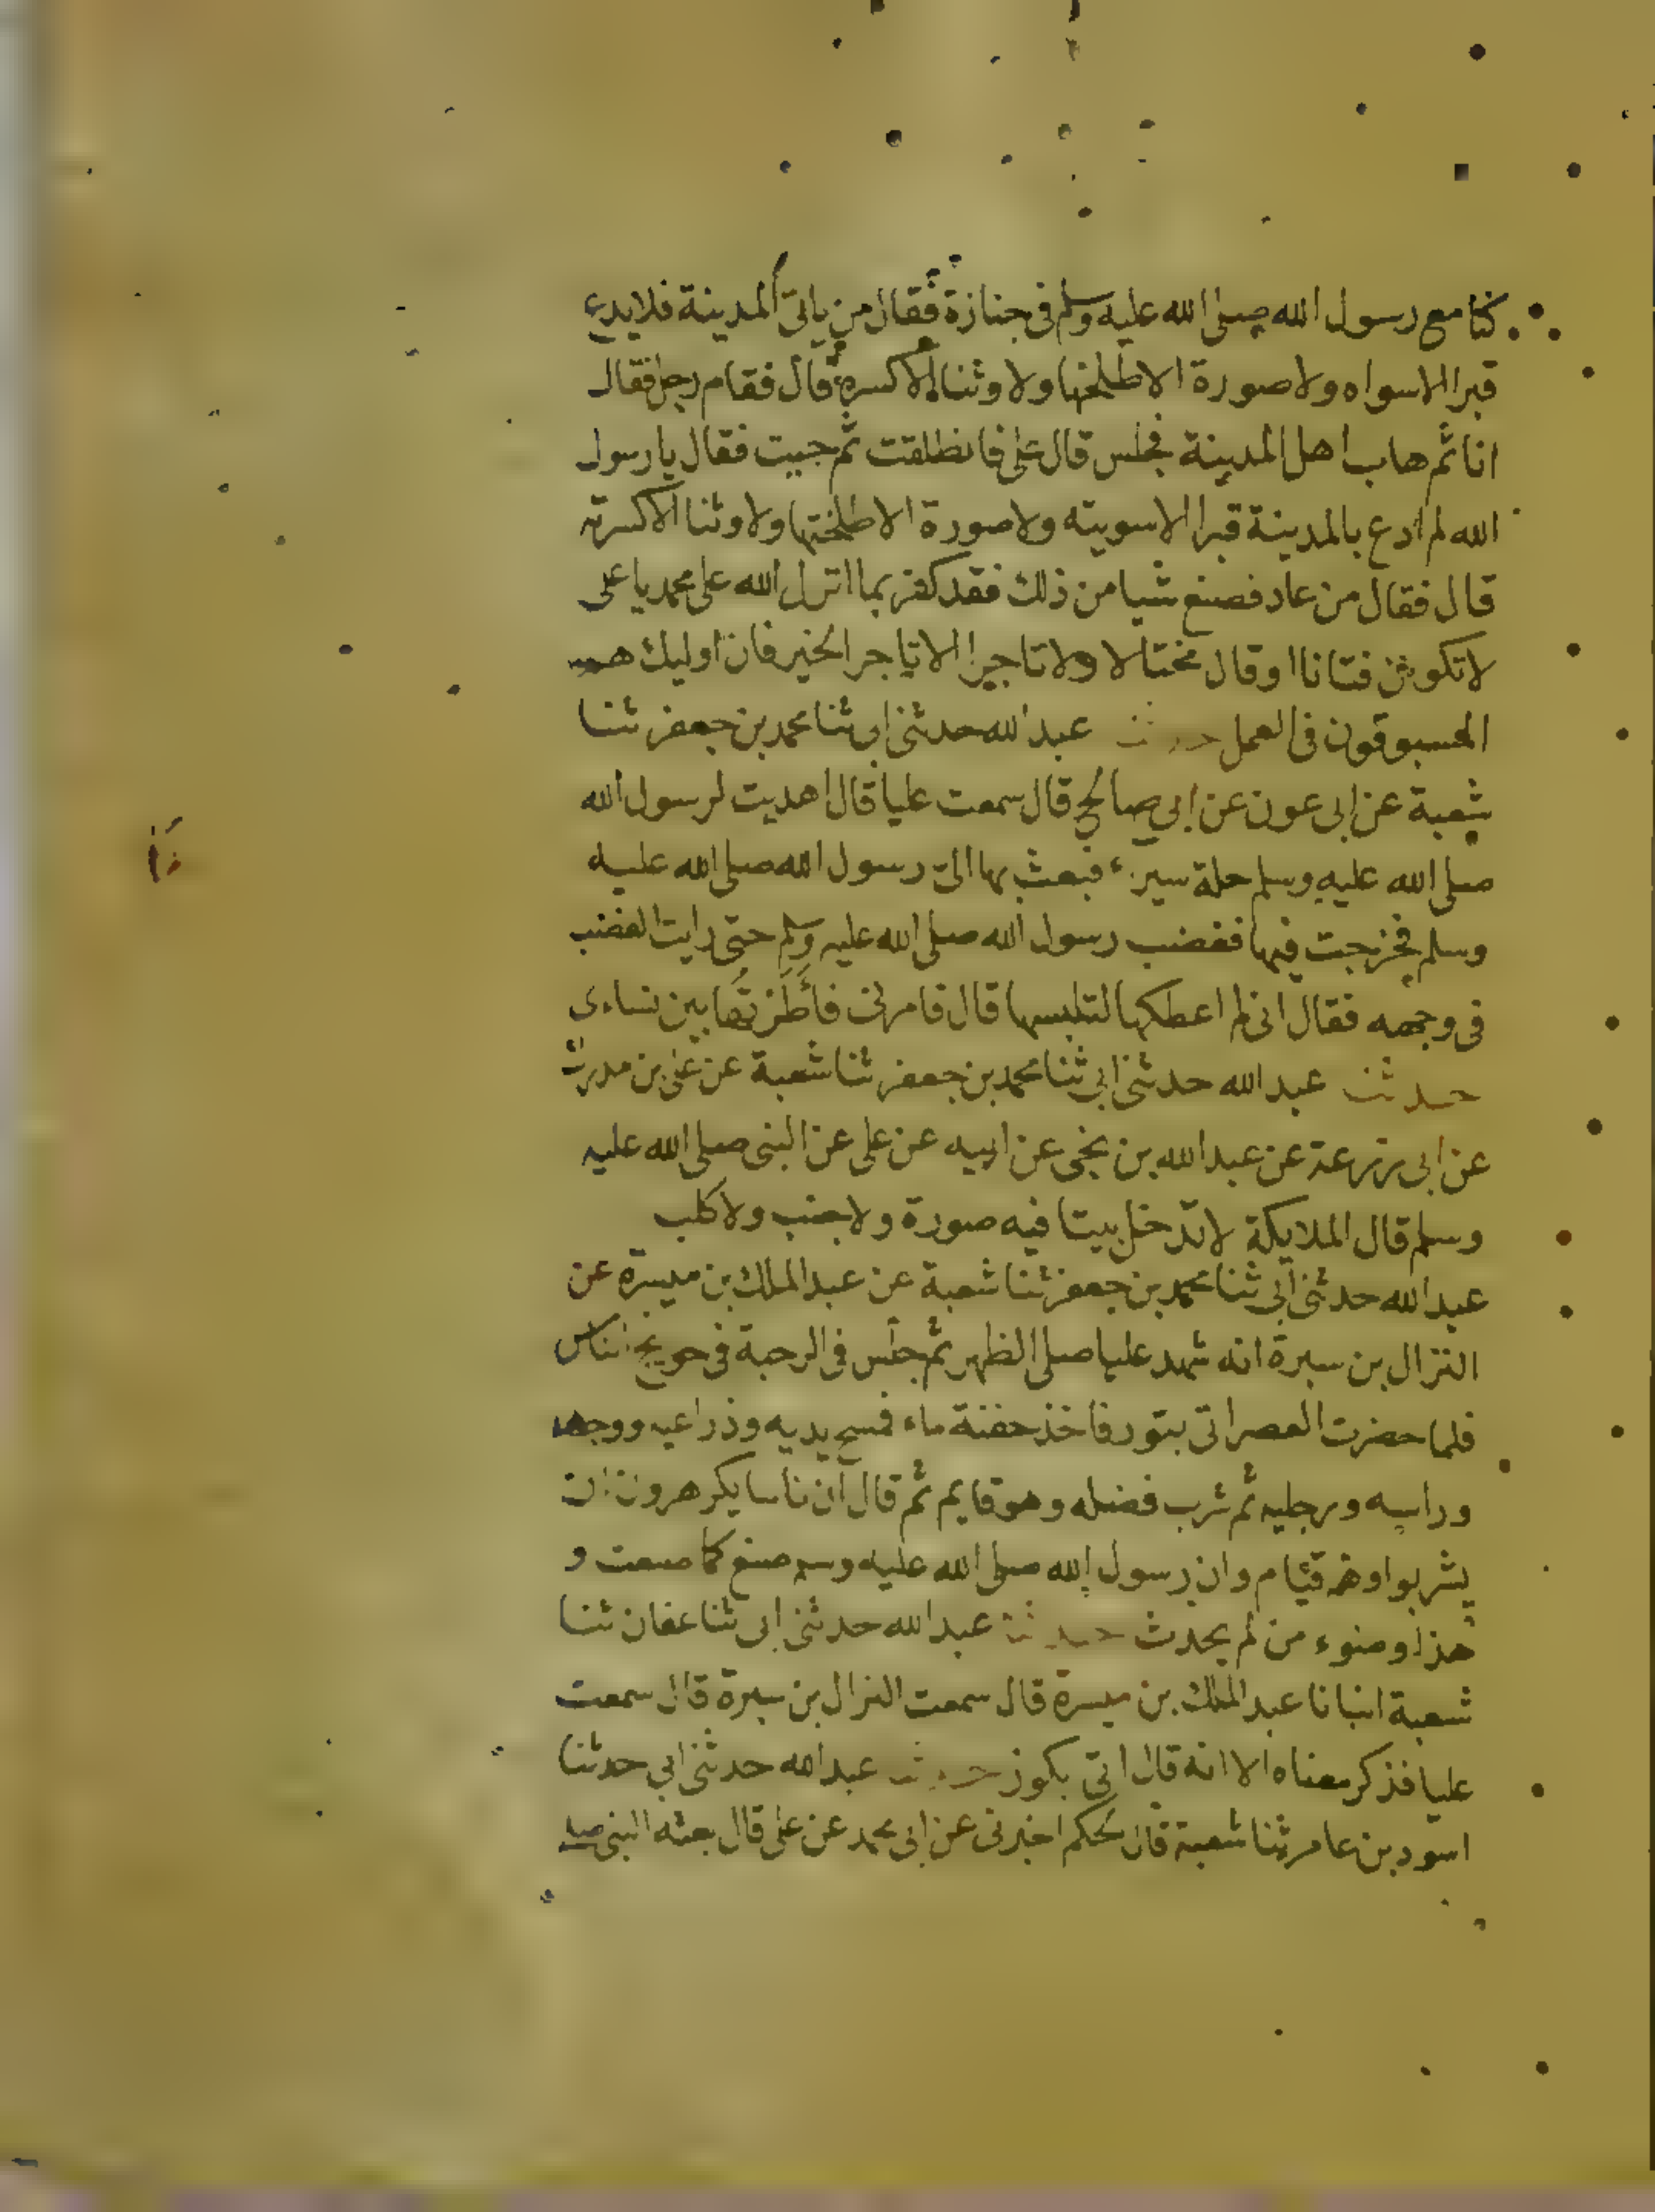 كنا مع رسول الله صلى الله عليه وسلم في جنازة فقال من ياتى المدينة فلا يدع
قبرا الا سواه ولا صورة الا طلخها ولا وثنا الا كسره قال فقام رجل فقال
انا ثم هاب اهل المدينة فجلس قال على فانطلقت ثم جيت فقال يا رسول
الله لم ادع بالمدينة قبرا الا سويته ولا صورة الا طلختها ولا وثنا الا كسرته
قال فقال من عاد فصنع شيا من ذلك فقد كفر بما انزل الله على محمد يا على
لا تكونن فتانا او قال مختالا ولا تاجرا الا تاجر الخير فان اوليك هم
المسبوقون فى العمل حدثنا عبد الله حدثنى ابى ثنا محمد بن جعفر ثنا
شعبة عن ابى عون عن ابي صالح قال سمعت عليا قال اهديت لرسول الله
صلى الله عليه وسلم حلة سيرء فبعث بها الى رسول الله صلى الله عليه
وسلم فخرجت فيها فغضب رسول الله صلى الله عليه وسلم حتى رايت الغضب
فى وجهه فقال انى لم اعطكها لتلبسها قال فامرنى فأَطَرْتُها بين نساءى
حدثنا عبد الله حدثنى ابي ثنا محمد بن جعفر ثنا شعبة عن على بن مدرك
عن ابى زرعة عن عبد الله بن نجى عن ابيه عن على عن النبى صلى الله عليه
وسلم قال الملايكة لا تدخل بيتا فيه صورة ولا جنب ولا كلب
عبد الله حدثنى أبي ثنا محمد بن جعفر ثنا شعبة عن عبد الملك بن ميسرة عن
النزال بن سبرة انه شهد عليا صلى الظهر ثم جلس فى الرحبة فى حويج الناس
فلما حضرت العصر اتى بتور فاخذ حفنة ماء فمسح يديه وذراعيه ووجهه
وراسه ورجليه ثم شرب فضله وهو قايم ثم قال ان ناسا يكرهون ان
يشربوا وهم قيام وان رسول الله صلى الله عليه وسلم صنع كما صنعت و
هذا وضوء من لم يحدث حدثنا عبد الله حدثنى ابى ثنا عفان ثنا
شعبة انبانا عبد الملك بن ميسرة قال سمعت النزال بن سبرة قال سمعت
عليا فذكر معناه الا انه قال اتى بكوز حدثنا عبد الله حدثنى ابي حدثنا
اسود بن عامر ثنا شعبة قال لحكم اخبرنى عن ابى محمد عن على قال بعثه النبى صلى